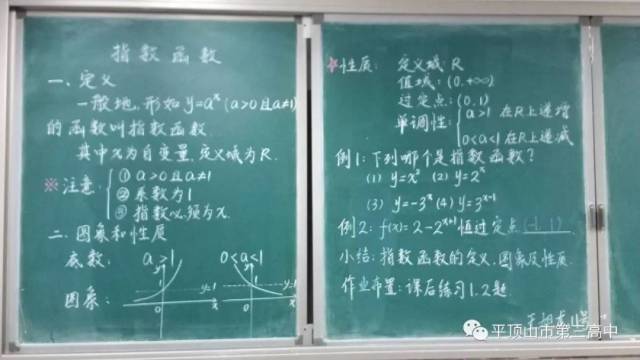 指数函数
一、定义
一般地,形如 y=aˣ (a>0且a≠1)
的函数叫指数函数.
其中x为自变量,定义域为R.
※注意:
① a>0且a≠1
② 系数为1
③ 指数必须为x.
二、图象和性质
底数: a>1 0<a<1
图象:
y y
1 y=1 1 y=1
0 x 0 x
※性质: 定义域: R
值域: (0,+∞)
过定点: (0,1)
单调性: a>1 在R上递增
0<a<1 在R上递减
例1:下列哪个是指数函数?
(1) y=x² (2) y=2ˣ
(3) y=-3ˣ (4) y=3ˣ⁻¹
例2: f(x)=2-2ˣ⁺¹ 恒过定点(-1,1)
小结: 指数函数的定义、图象及性质.
作业布置: 课后练习1.2题
平顶山市第三高中